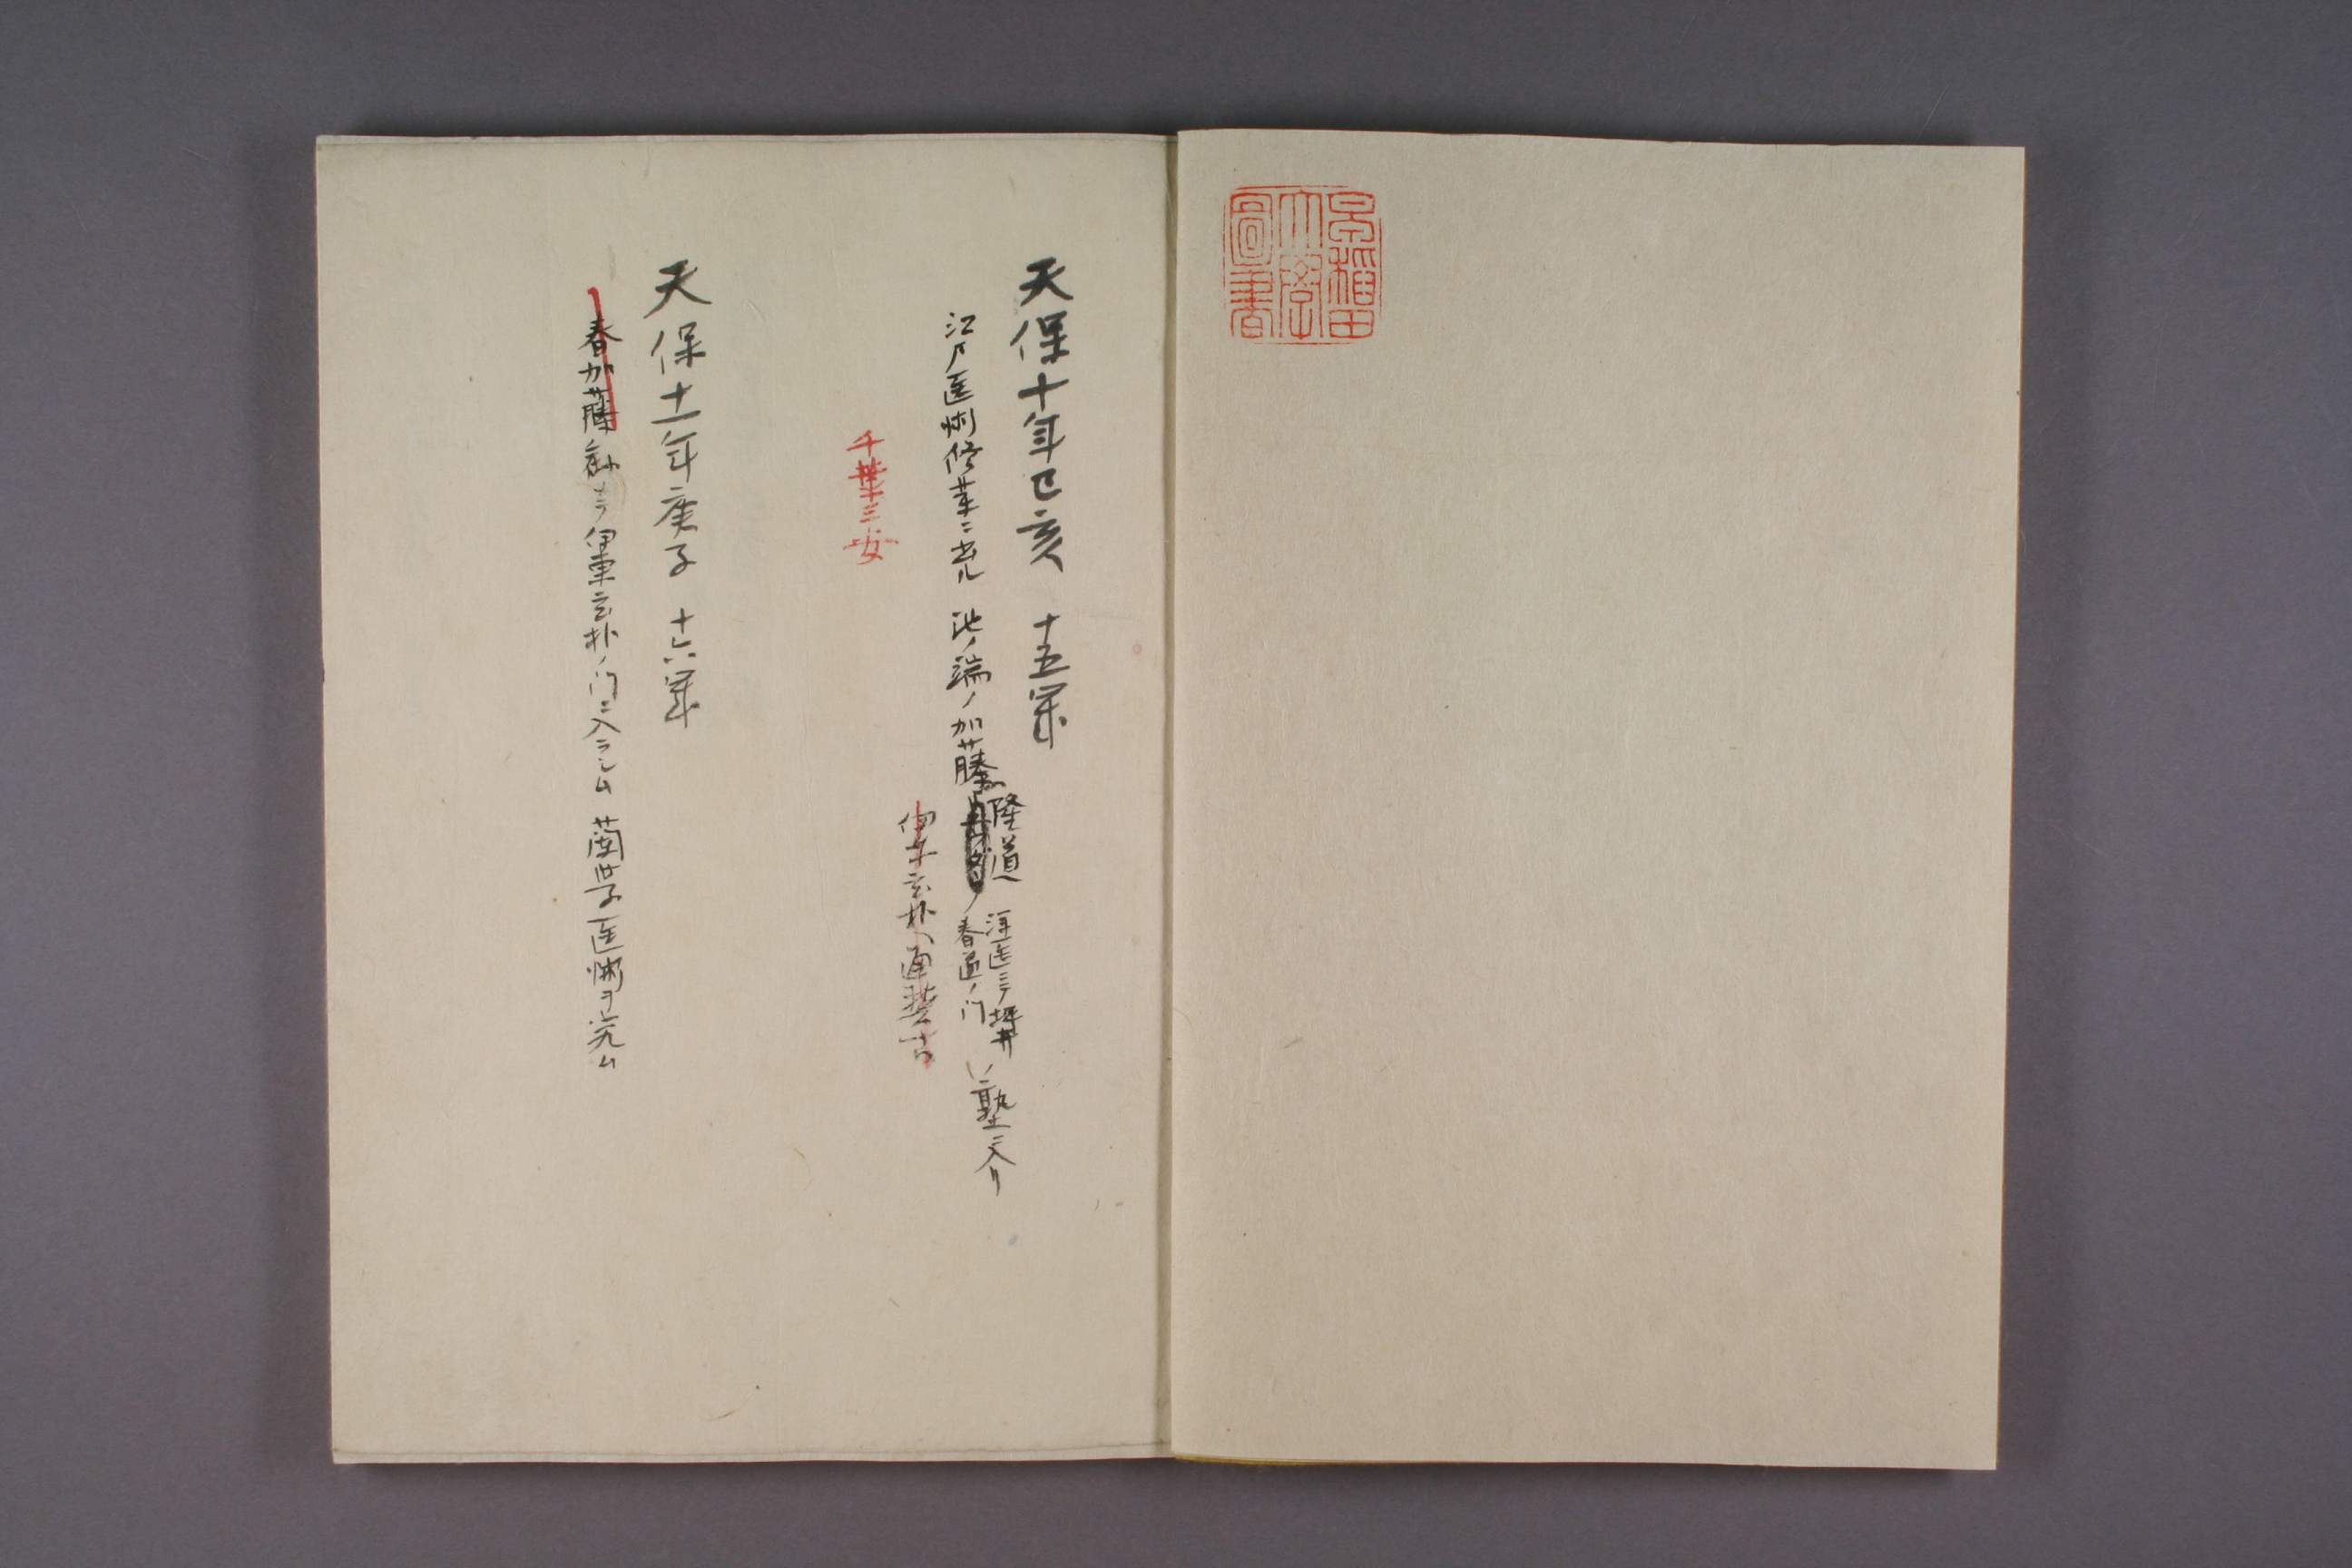 早稲田
大学
圖書
天保十年己亥 十五年
江戸医術修業ニ出ル 池ノ端ノ加藤
隆道
洋医ニテ坪井
春道ノ門
塾ニ入リ
伊東玄朴
千葉三安
天保十一年庚子 十六年
春加藤
伊東玄朴ノ門ニ入ラシム 蘭学医術ヲ究ム